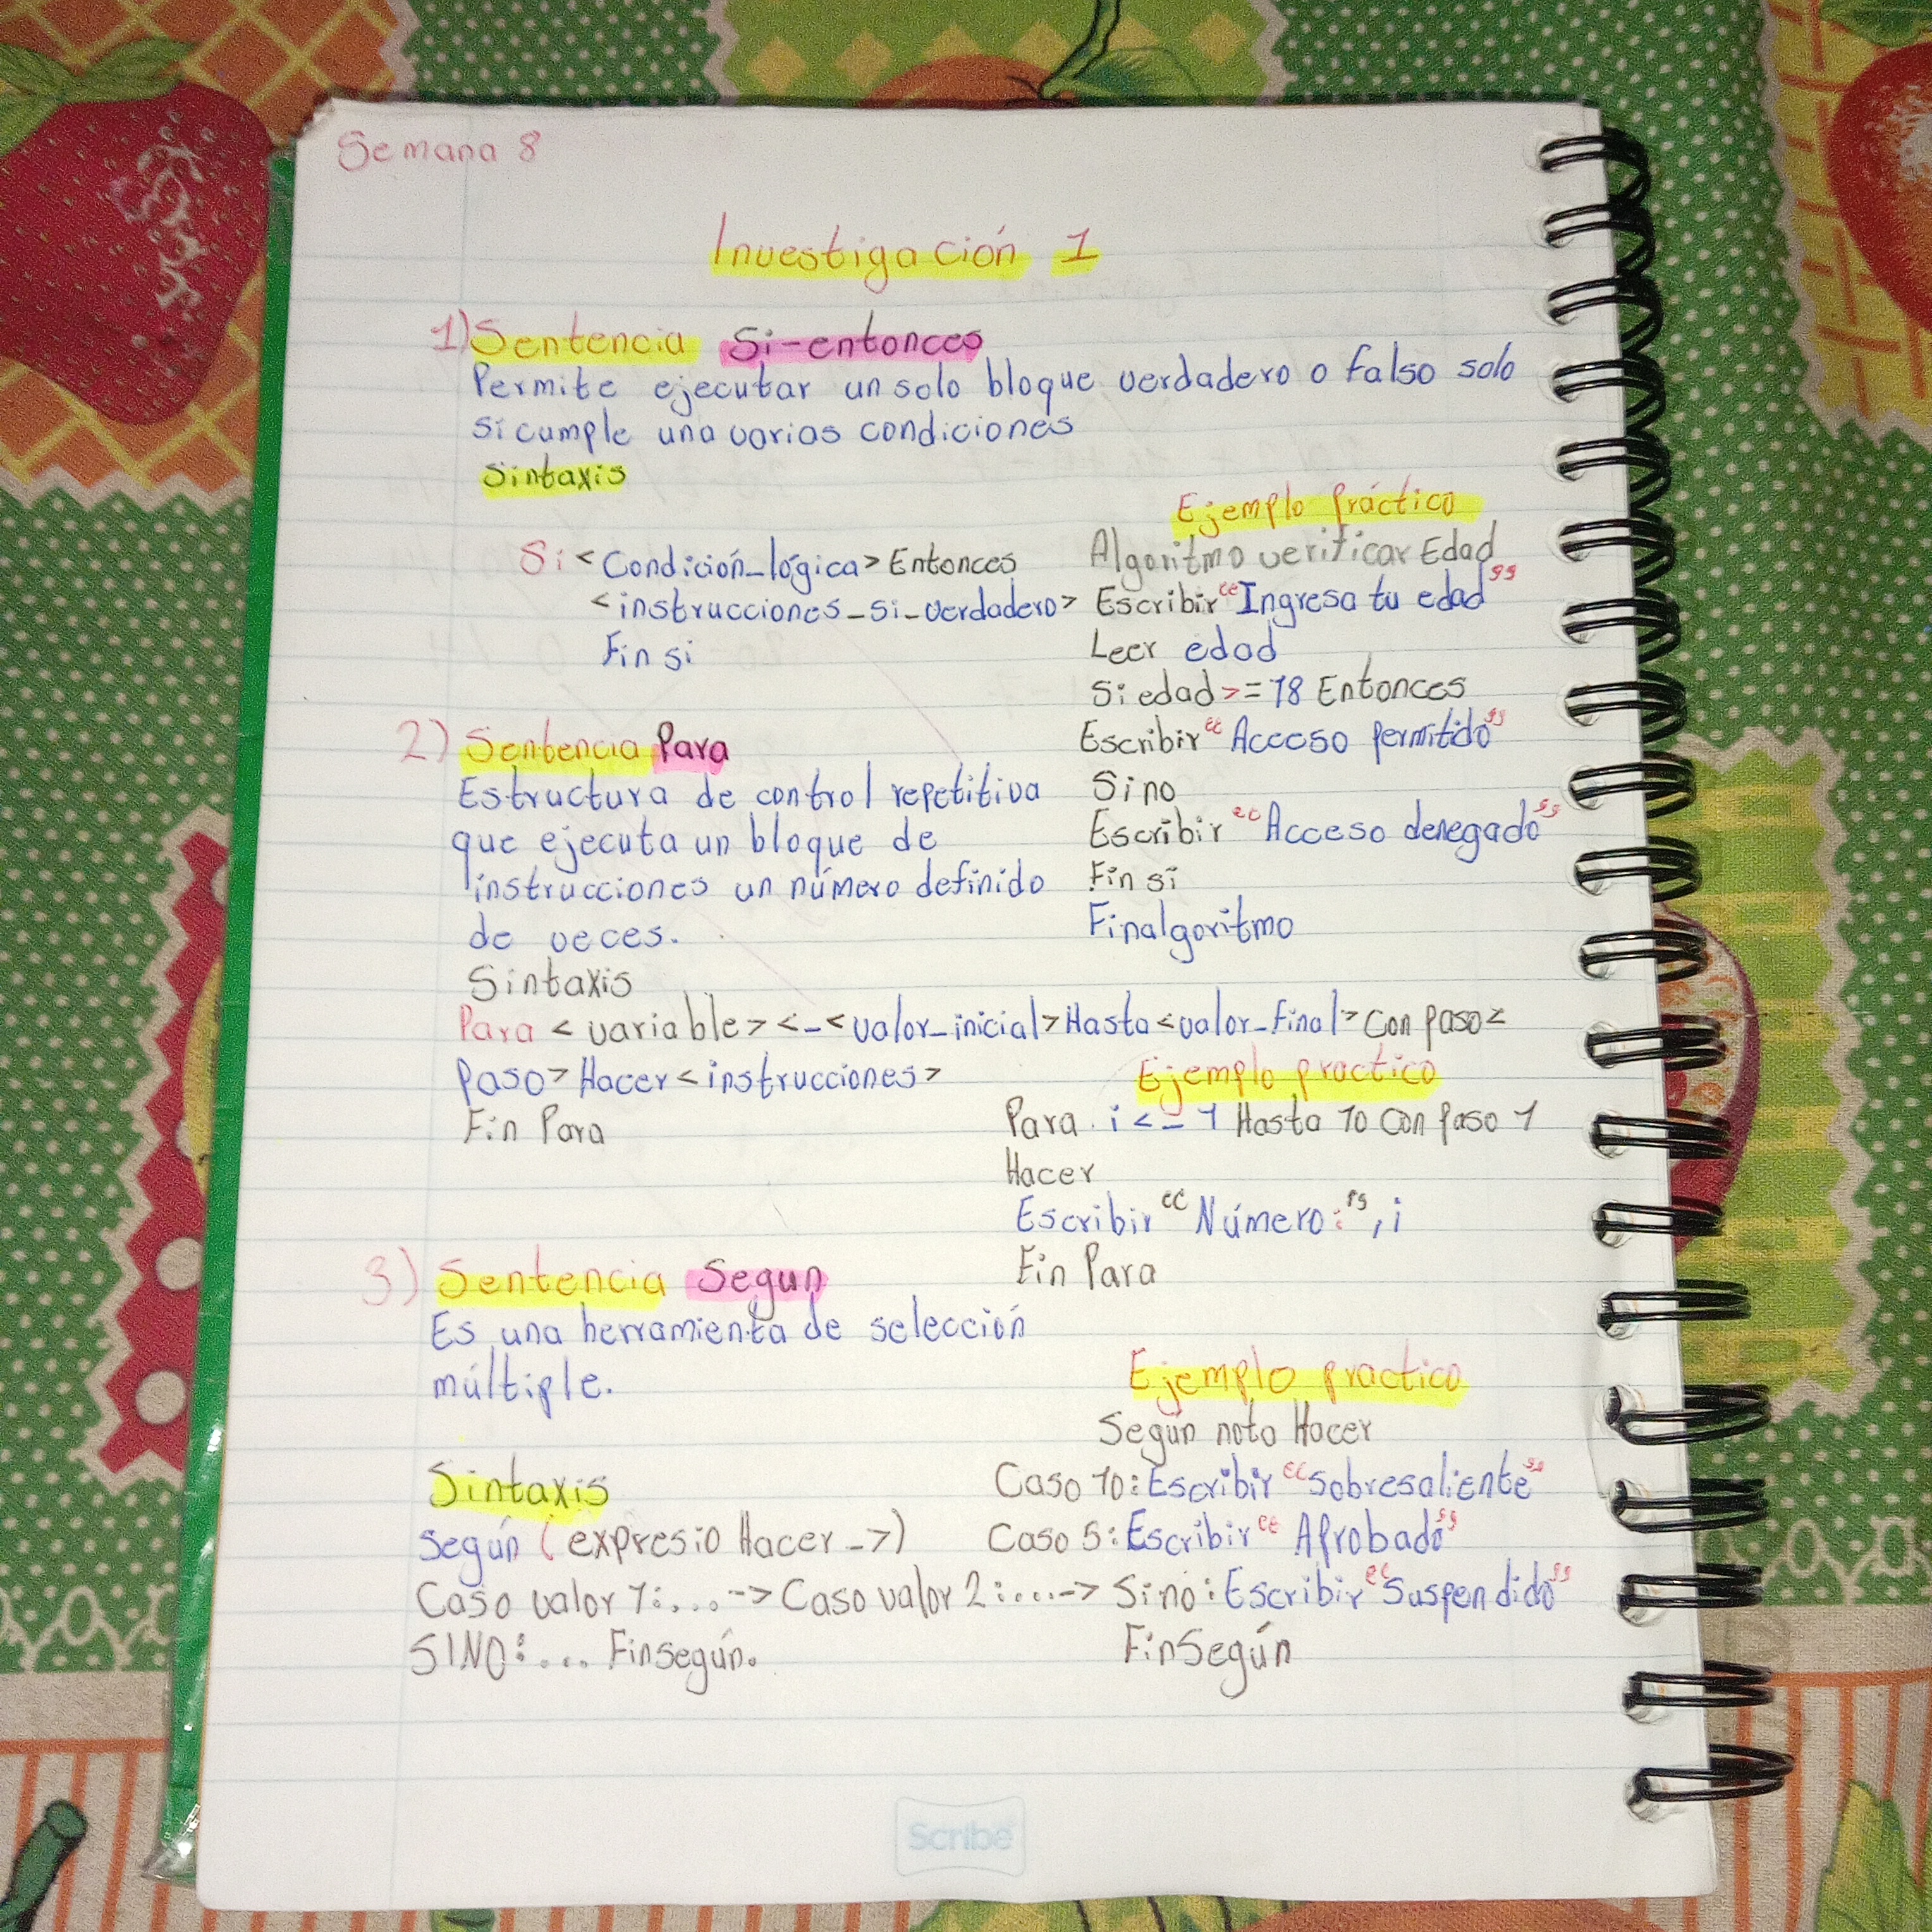 Semana 8
Investigación 1
1) Sentencia Si-entonces
Permite ejecutar un solo bloque verdadero o falso solo
si cumple una varias condiciones
Sintaxis
Si <Condición_lógica> Entonces
<instrucciones_si_verdadero>
Fin si
Ejemplo práctico
Algoritmo verificar Edad
Escribir "Ingresa tu edad"
Leer edad
Si edad >= 18 Entonces
Escribir "Acceso Permitido"
Sino
Escribir "Acceso denegado"
Fin si
Finalgoritmo
2) Sentencia Para
Estructura de control repetitiva
que ejecuta un bloque de
instrucciones un número definido
de veces.
Sintaxis
Para <variable> <-<valor_inicial> Hasta <valor_final> Con paso<
Paso> Hacer <instrucciones>
Fin Para
Ejemplo practico
Para i <- 1 Hasta 10 Con Paso 1
Hacer
Escribir "Número:", i
Fin Para
3) Sentencia Segun
Es una herramienta de selección
múltiple.
Sintaxis
según (expresio Hacer ->)
Caso valor 1:...-> Caso valor 2:....->
SINO:... Finsegún.
Ejemplo practico
Según nota Hacer
Caso 10: Escribir "sobresaliente"
Caso 5: Escribir "Aprobado"
Sino: Escribir "Suspendido"
FinSegún
Scribe